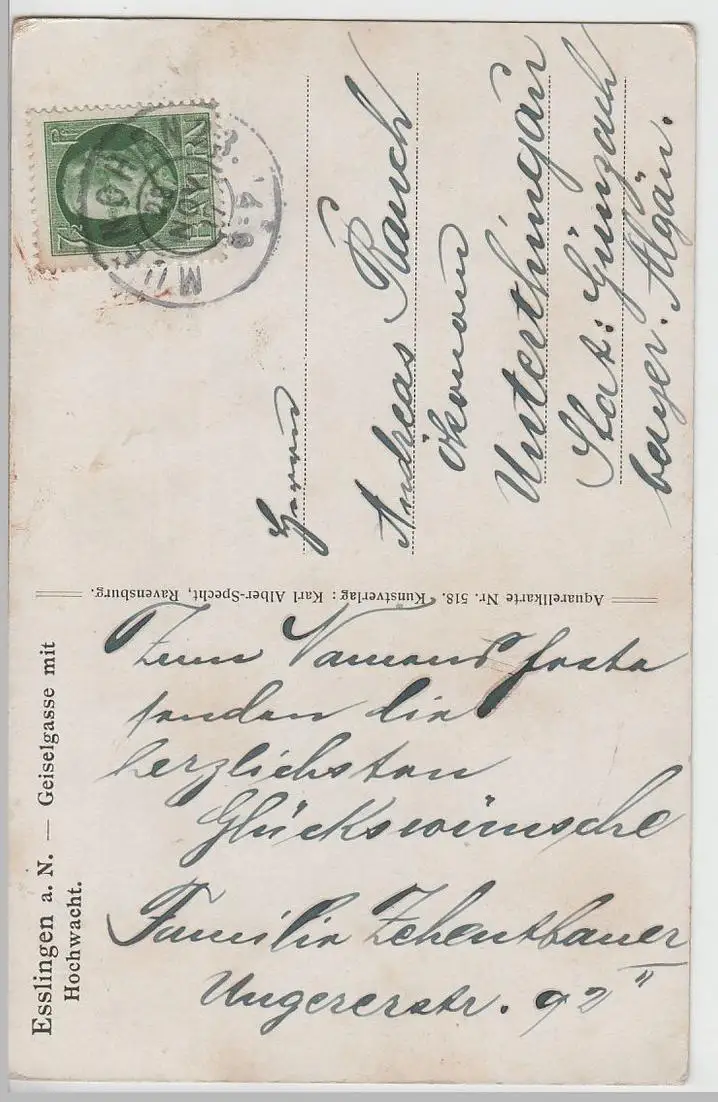 Esslingen a. N. — Geiselgasse mit
Hochwacht.
Aquarellkarte Nr. 518. Kunstverlag: Karl Alber-Specht, Ravensburg.
7½ P
BAYERN
MÜNCHEN
28 NOV
Herrn
Andreas Rauch
Ökonom
Unterthingau
Stat: Günzach
bayer. Algäu.
Zum Namensfeste
senden die
herzlichsten
Glückswünsche
Familie Zehentbauer
Ungererstr. 92 II